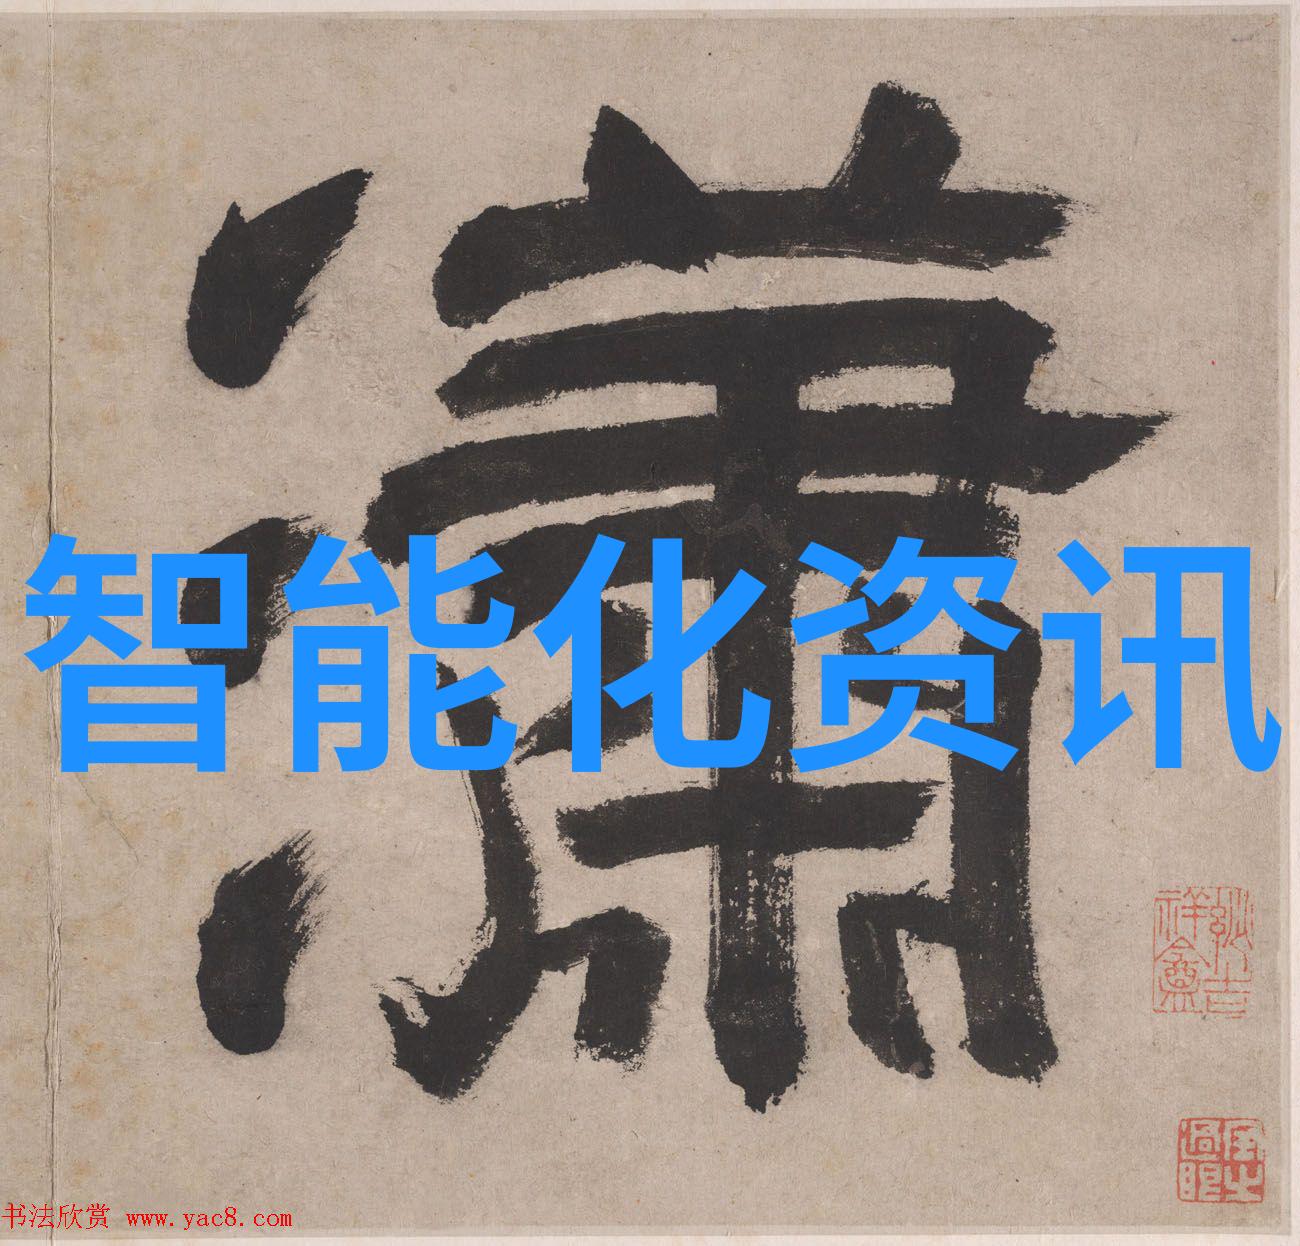 瀟
智能化资讯
书法欣赏 www.yac8.com